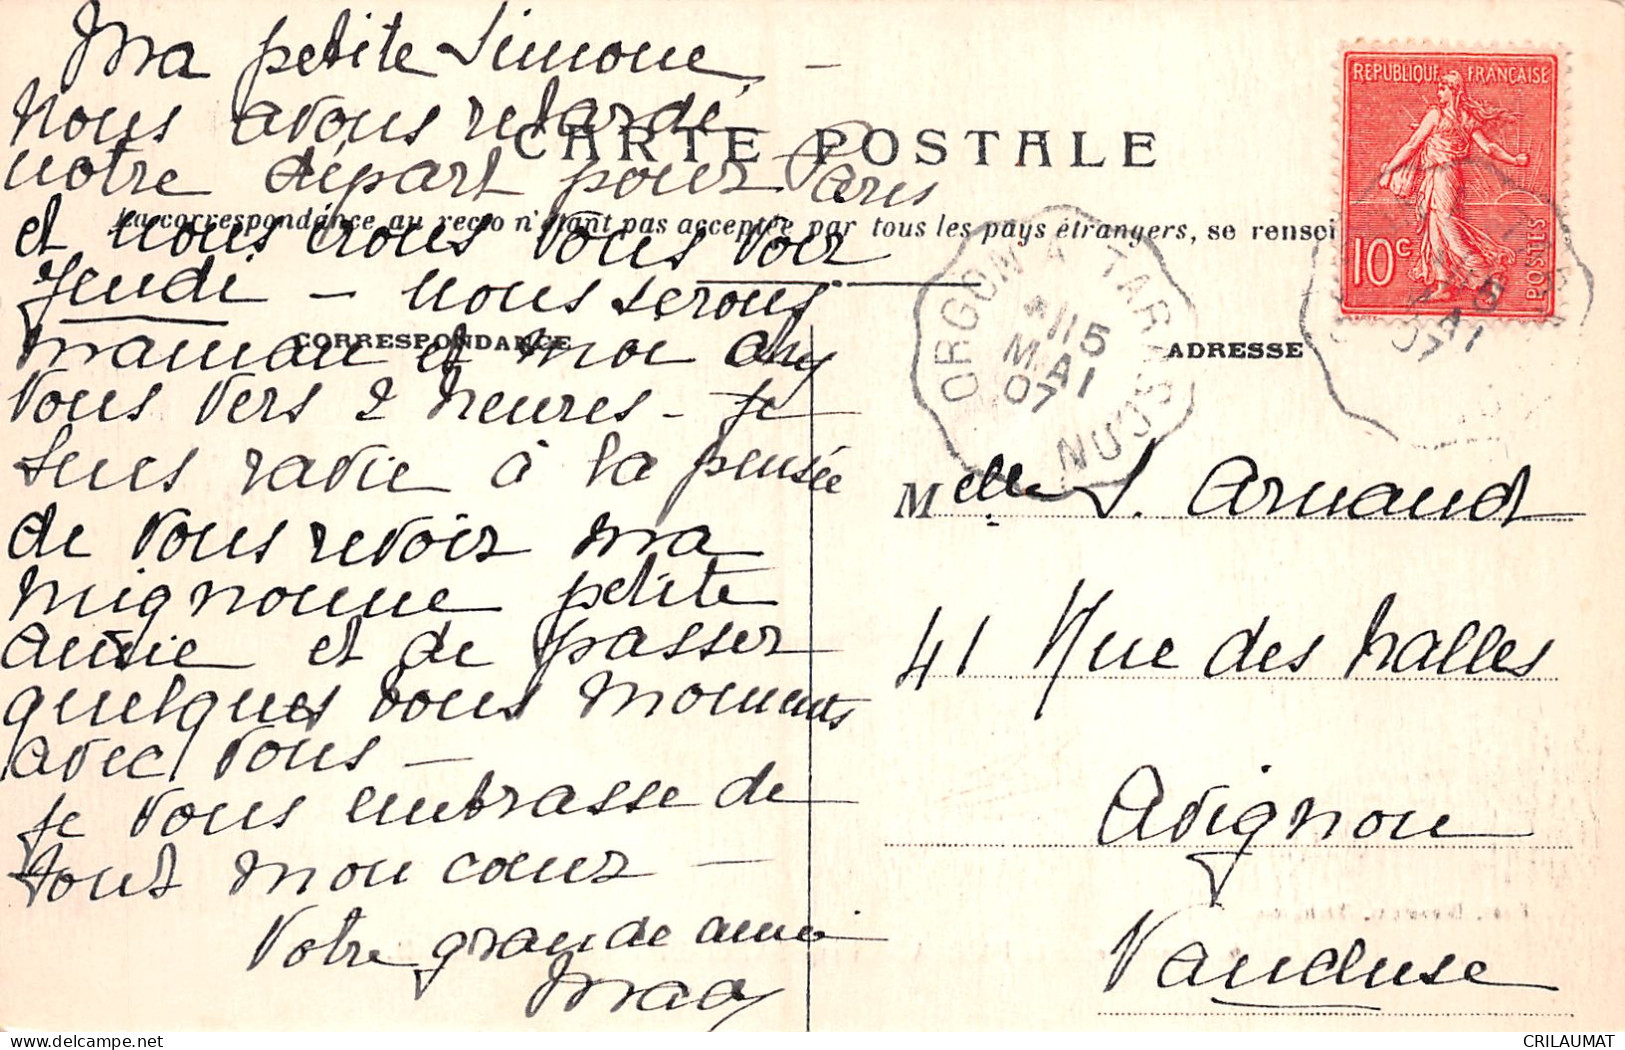 Ma petite Simone -
Nous avons retardé
notre départ pour Paris
et nous irons vous voir
Jeudi - nous serons
maman et moi chez
vous vers 2 heures - Je
suis ravie à la pensée
de vous revoir ma
mignonne petite
amie et de passer
quelques bons moments
avec vous -
Je vous embrasse de
tout mon cœur -
Votre grande amie
CARTE POSTALE
La correspondance au recto n'étant pas acceptée par tous les pays étrangers, se rensei
CORRESPONDANCE
ADRESSE
REPUBLIQUE FRANÇAISE
10c
POSTES
ORGON A TARASCON
15
MAI
07
Melle S. Arnaud
41 Rue des halles
Avignon
Vaucluse
CRILAUMAT